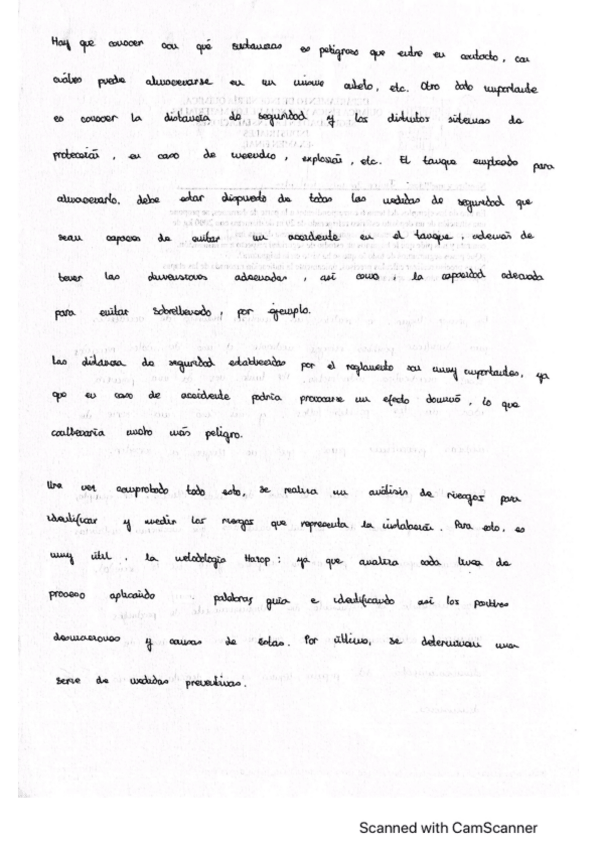 Hay que conocer con qué sustancias es peligroso que entre en contacto, con
cuáles puede almacenarse en un mismo cubeto, etc. Otro dato importante
es conocer la distancia de seguridad y los distintos sistemas de
protección, en caso de incendio, explosión, etc. El tanque empleado para
almacenarlo, debe estar dispuesto de todas las medidas de seguridad que
sean capaces de evitar un accidente en el tanque, además de
tener las dimensiones adecuadas, así como, la capacidad adecuada
para evitar sobrellenado, por ejemplo.
Las distancia de seguridad establecidas por el reglamento son muy importantes, ya
que en caso de accidente podría provocarse un efecto dominó, lo que
conllevaría mucho más peligro.
Una vez comprobado todo esto, se realiza un análisis de riesgos para
identificar y medir los riesgos que representa la instalación. Para esto, es
muy útil, la metodología Hazop; ya que analiza cada línea de
proceso aplicando palabras guía e identificando así las posibles
desviaciones y causas de estas. Por último, se determinan una
serie de medidas preventivas.
Scanned with CamScanner